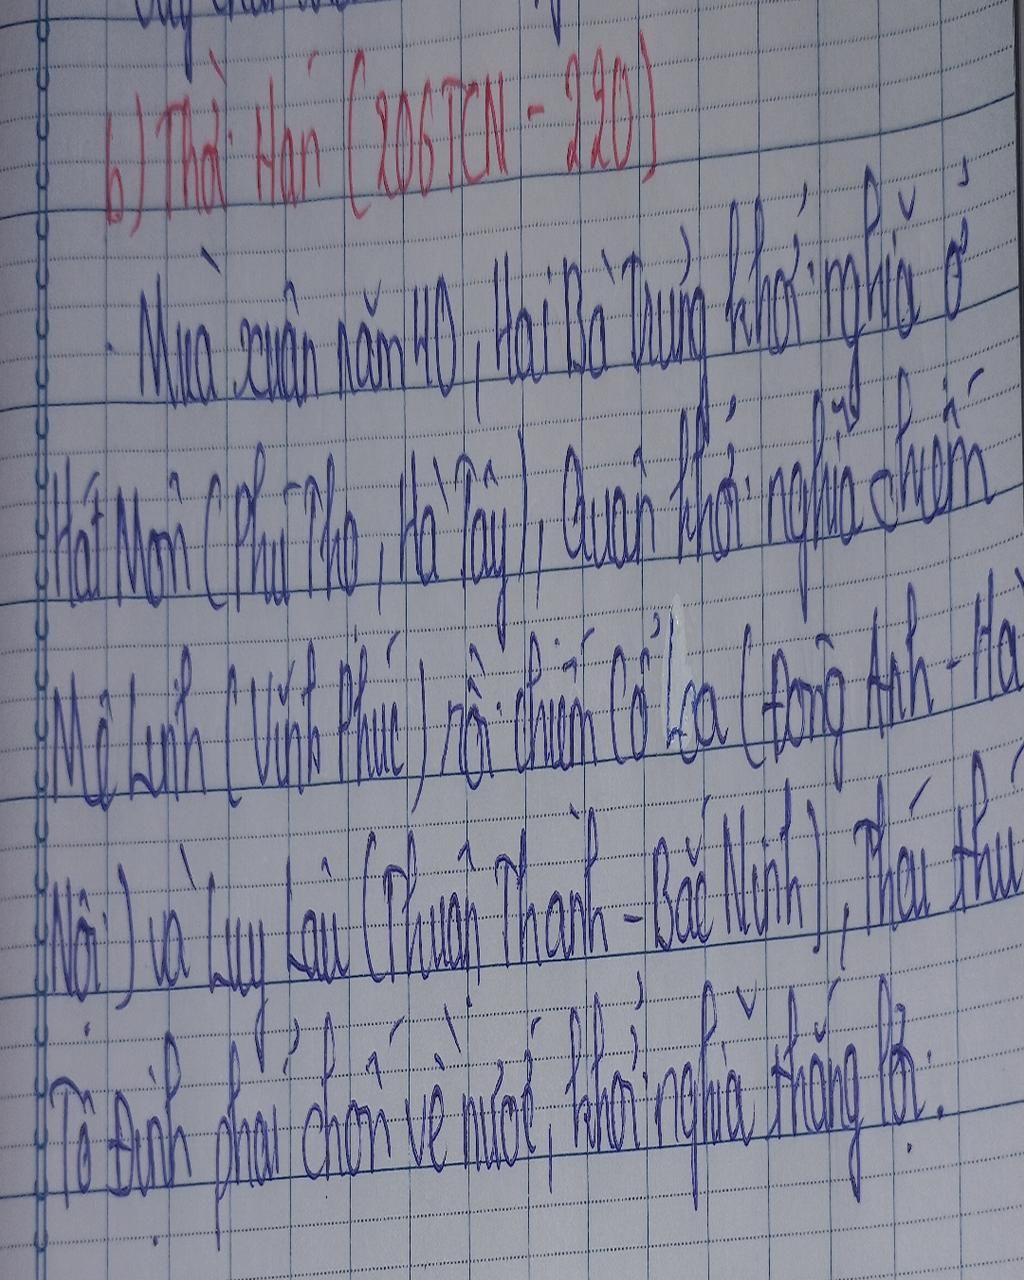 b) Thời Hán (206TCN - 220)
- Mùa xuân năm 40, Hai Bà Trưng khởi nghĩa ở
Hát Môn (Phú Thọ, Hà Tây), Quân khởi nghĩa chiếm
Mê Linh (Vĩnh Phúc) rồi chiếm Cổ Loa (Đông Anh - Hà
Nội) và Luy Lâu (Thuận Thành - Bắc Ninh), Thái thú
Tô Định phải chốn về nước, khởi nghĩa thắng lợi.